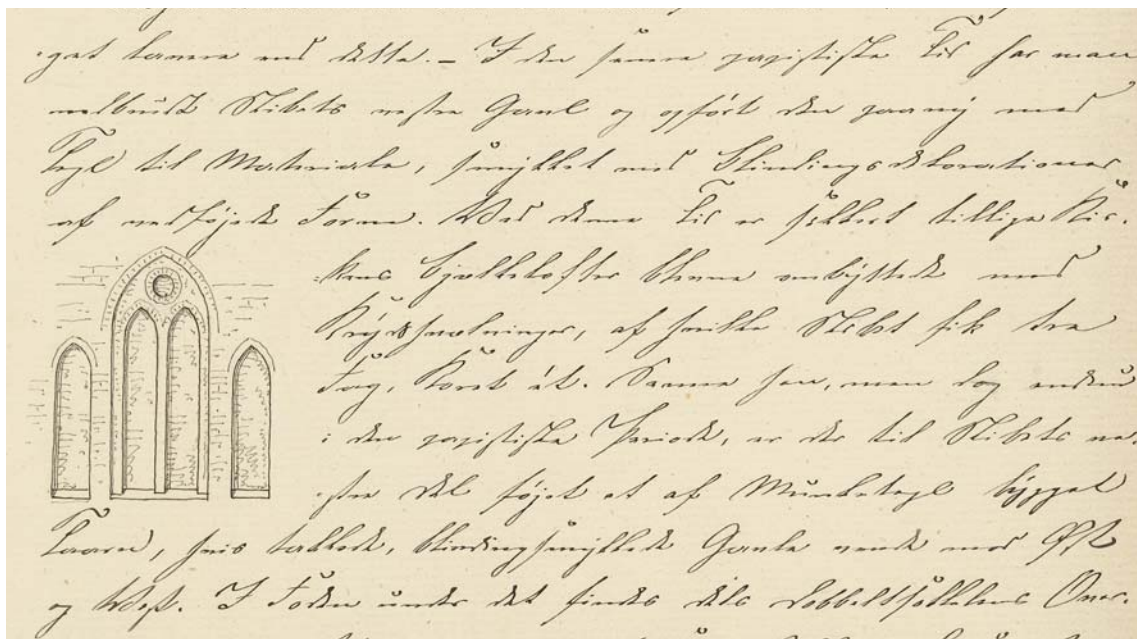 get lavere end dette. – I den senere papistiske Tid har man
nedbrudt Skibets vestre Gavl og opført den paany med
Tegl til Materiale, smykket med Blindingsdekorationer
af vedføjede Form. Ved denne Tid er sikkert tillige Kir-
kens Bjælkelofter blevne ombyttede med
Krydshvælvinger, af hvilke Skibet fik tre
Fag, Koret ét. Samme hen, men dog endnu
i den papistiske Periode, er der til Skibets ve-
stre Del føjet et af Munketegl bygget
Taarn, hvis takkede, blindingsmykkede Gavle vende mod Øst
og Vest. I Foden under det findes dels Dobbeltsokkelens Over-